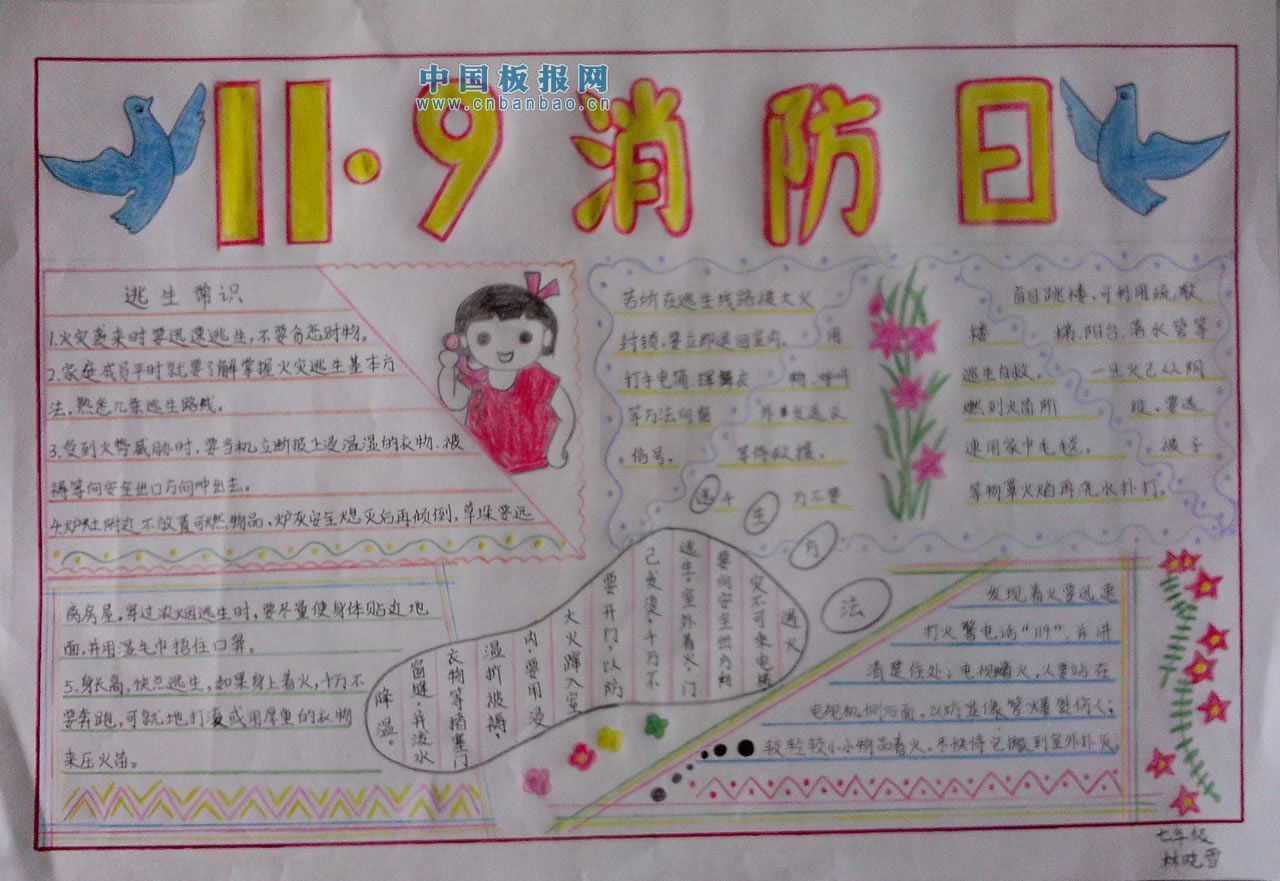 中国板报网
www.cnbanbao.cn
11·9消防日
逃生常识
1.火灾袭来时要迅速逃生,不要贪恋财物。
2.家庭成员平时就要了解掌握火灾逃生基本方
法,熟悉几条逃生路线。
3.受到火势威胁时,要当机立断披上浸湿的衣物、被
褥等向安全出口方向冲出去。
4.炉灶附近不放置可燃物品、炉灰安全熄灭后再倾倒,草垛要远
离房屋,穿过浓烟逃生时,要尽量使身体贴近地
面,并用湿毛巾捂住口鼻。
5.身长高,快点逃生,如果身上着火,千万不
要奔跑,可就地打滚或用厚重的衣物
来压火苗。
若所在逃生线路被大火
封锁,要立即退回室内, 用
打手电筒,挥舞衣 物、呼叫
等方法向窗 外发送求
信号, 等待救援。
千 万不要
盲目跳楼,可利用疏散
楼 梯,阳台、落水管等
逃生自救。
燃到火苗阶 段,要迅
速用家中毛毯、 被子
等物罩火焰再浇水扑打。
逃生方法
遇火
灾不可乘电梯
要向安全出口方向
逃生。室外着火,门
己发烫,千万不
要开门,以防
大火蹿入室
内,要用浸
湿的被褥,
衣物等堵塞门
窗缝,并泼水
降温。
发现着火要迅速
打火警电话“119”,并讲
清楚住处;电视着火,人要站在
电视机侧后面,以防显像管爆裂伤人;
较轻较小小物品着火,尽快将它搬到室外扑灭。
七年级
林晓雪